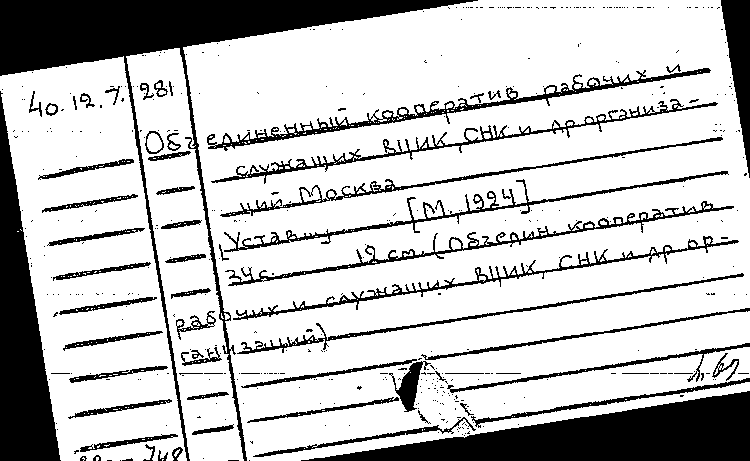 40.12.7. 281
Объединенный кооператив рабочих и
служащих ВЦИК, СНК и др. организа-
ций. Москва
[Устав]. [М., 1924]
34 с. 12 см. (Объедин. кооператив
рабочих и служащих ВЦИК, СНК и др. ор-
ганизаций)